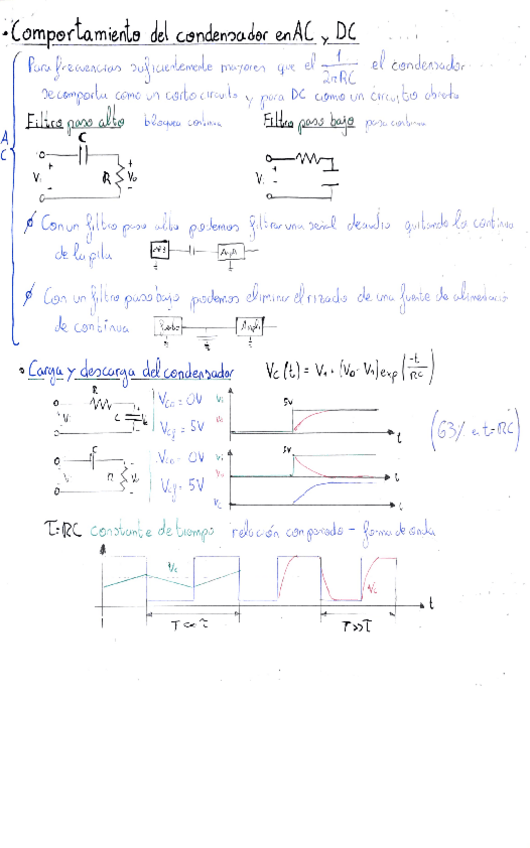 · Comportamiento del condensador en AC y DC
Para frecuencias suficientemente mayores que el 1/2πRC el condensador
se comporta como un corto circuito y para DC como un circuito abierto
AC
Filtro paso alto bloquea continua Filtro paso bajo pasa continua
C
+ Vi - R + Vo -
+ Vi -
Con un filtro paso alto podemos filtrar una señal de audio quitando la continua
de la pila
Con un filtro paso bajo podemos eliminar el rizado de una fuente de alimentación
de continua
• Carga y descarga del condensador Vc(t) = V1 + (V0 - V1) exp(-t/RC)
R C Vc0 = 0V 5V t
Vcf = 5V
(63% en t=RC)
C R Vc0 = 0V 5V t
Vcf = 5V t
τ=RC constante de tiempo relación con periodo - forma de onda
Vc Vc t
T<<τ T>>τ